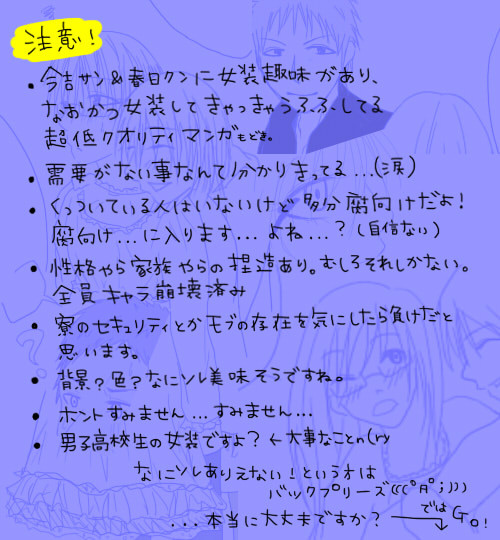 注意!
・今吉サン&春日クンに女装趣味があり、
なおかつ女装してきゃっきゃうふふしてる
超低クオリティマンガもどき。
・需要がない事なんて1分かりきってる...(涙)
・くっついている人はいないけど多分腐向けだよ!
腐向け...に入ります...よね...?(自信ない)
・性格やら家族やらの捏造あり。むしろそれしかない。
全員キャラ崩壊済み
・寮のセキュリティとかモブの存在を気にしたら負けだと
思います。
・背景?色?なにソレ美味そうですね。
・ホントすみません...すみません...
・男子高校生の女装ですよ?←大事なことn(ry
なにソレありえない!という方は
バックプリーズ(((°A°;)))
...本当に大丈夫ですか?→ではGO!